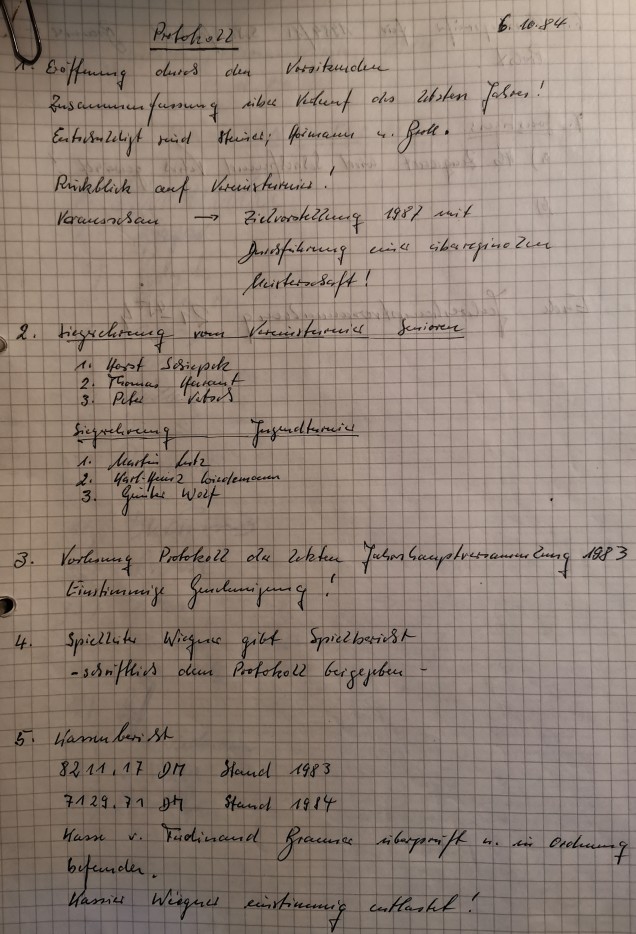 Protokoll 6.10.84
1. Eröffnung durch den Vorsitzenden
Zusammenfassung über Verlauf des letzten Jahres!
Entschuldigt sind Steiner, u.
Rückblick auf Vereinsturnier!
Vorausschau → Zielvorstellung 1987 mit
Durchführung einer überregionalen
Meisterschaft!
2. Siegerehrung vom Vereinsturnier Senioren
1. Horst
2. Thomas
3. Peter
Siegerehrung Jugendturnier
1. Martin Lutz
2. Karl-Heinz Wiedemann
3. Günter Wolf
3. Verlesung Protokoll der letzten Jahreshauptversammlung 1983
Einstimmige Genehmigung!
4. Spielleiter Wiegner gibt Spielbericht
- schriftlich dem Protokoll beigegeben -
5. Kassenbericht
8211.17 DM Stand 1983
7129.71 DM Stand 1984
Kasse v. Ferdinand überprüft u. in Ordnung
befunden.
Kassier Wiegner einstimmig entlastet!